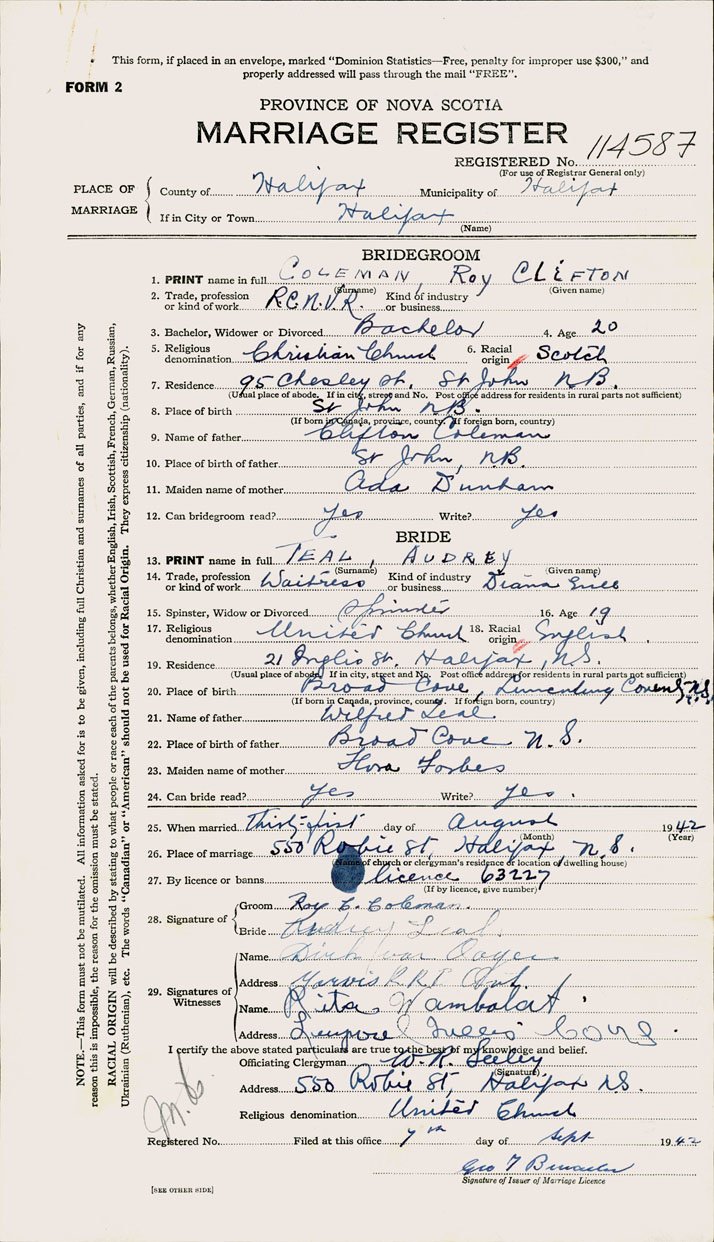 This form, if placed in an envelope, marked "Dominion Statistics—Free, penalty for improper use $300," and
properly addressed will pass through the mail "FREE".
FORM 2
PROVINCE OF NOVA SCOTIA
MARRIAGE REGISTER
REGISTERED No. 114587
(For use of Registrar General only)
PLACE OF MARRIAGE
County of Halifax Municipality of Halifax
If in City or Town Halifax
(Name)
BRIDEGROOM
1. PRINT name in full COLEMAN, ROY CLIFTON
(Surname) (Given name)
2. Trade, profession or kind of work R.C.N.V.R. Kind of industry or business
3. Bachelor, Widower or Divorced Bachelor 4. Age 20
5. Religious denomination Christian Church 6. Racial origin Scotch
7. Residence 95 Chesley St. St John N.B.
(Usual place of abode. If in city, street and No. Post office address for residents in rural parts not sufficient)
8. Place of birth St John N.B.
(If born in Canada, province, county. If foreign born, country)
9. Name of father Clifton Coleman
10. Place of birth of father St John, N.B.
11. Maiden name of mother Ada Dunham
12. Can bridegroom read? Yes Write? Yes
BRIDE
13. PRINT name in full TEAL, AUDREY
(Surname) (Given name)
14. Trade, profession or kind of work Waitress Kind of industry or business Diana Grill
15. Spinster, Widow or Divorced Spinster 16. Age 19
17. Religious denomination United Church 18. Racial origin English
19. Residence 21 Inglis St. Halifax, N.S.
(Usual place of abode. If in city, street and No. Post office address for residents in rural parts not sufficient)
20. Place of birth Broad Cove, Lunenburg N.S.
(If born in Canada, province, county. If foreign born, country)
21. Name of father Wilfred Teal
22. Place of birth of father Broad Cove N.S.
23. Maiden name of mother Flora Forbes
24. Can bride read? Yes Write? Yes.
25. When married Thirty-first day of August 1942
(Month) (Year)
26. Place of marriage 550 Robie St, Halifax, N.S.
(Name of church or clergyman's residence or location of dwelling house)
27. By licence or banns licence 63227
(If by licence, give number)
28. Signature of
Groom Roy C. Coleman
Bride Audrey Teal
29. Signatures of Witnesses
Name Dirk
Address Jarvis R.R.1 Ont.
Name Rita Wambolat
Address Cove
I certify the above stated particulars are true to the best of my knowledge and belief.
Officiating Clergyman W. R. Seeley
(Signature)
Address 550 Robie St, Halifax N.S.
Religious denomination United Church
Registered No. Filed at this office 7th day of Sept 1942
Geo
Signature of Issuer of Marriage Licence
[SEE OTHER SIDE]
NOTE.—This form must not be mutilated. All information asked for is to be given, including full Christian and surnames of all parties, and if for any
reason this is impossible, the reason for the omission must be stated.
RACIAL ORIGIN will be described by stating to what people or race each of the parents belongs, whether English, Irish, Scottish, French, German, Russian,
Ukrainian (Ruthenian), etc. The words "Canadian" or "American" should not be used for Racial Origin. They express citizenship (nationality).